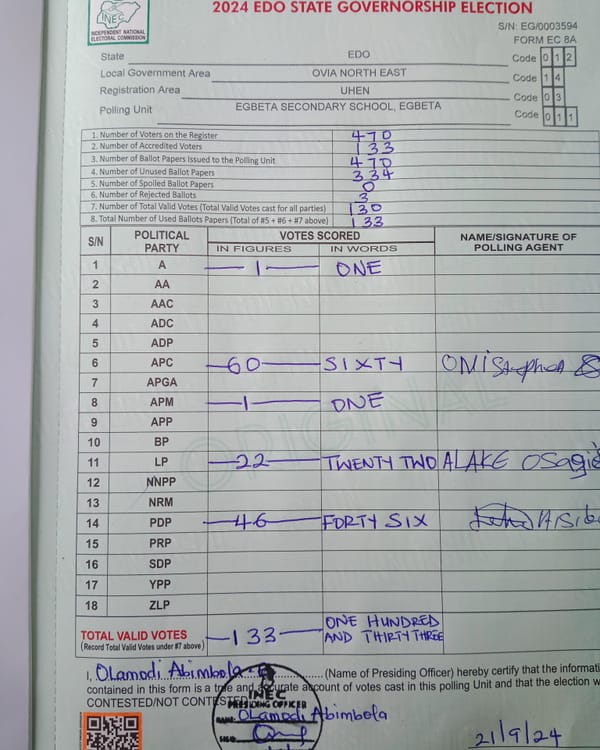 2024 EDO STATE GOVERNORSHIP ELECTION
INEC
INDEPENDENT NATIONAL
ELECTORAL COMMISSION
S/N: EG/0003594
FORM EC 8A
State EDO Code 0 1 2
Local Government Area OVIA NORTH EAST Code 1 4
Registration Area UHEN Code 0 3
Polling Unit EGBETA SECONDARY SCHOOL, EGBETA Code 0 1 1
1. Number of Voters on the Register 470
2. Number of Accredited Voters 133
3. Number of Ballot Papers Issued to the Polling Unit 470
4. Number of Unused Ballot Papers 334
5. Number of Spoiled Ballot Papers 0
6. Number of Rejected Ballots 3
7. Number of Total Valid Votes (Total Valid Votes cast for all parties) 130
8. Total Number of Used Ballots Papers (Total of #5 + #6 + #7 above) 133
S/N POLITICAL PARTY VOTES SCORED NAME/SIGNATURE OF POLLING AGENT
IN FIGURES IN WORDS
1 A 1 ONE
2 AA
3 AAC
4 ADC
5 ADP
6 APC 60 SIXTY
7 APGA
8 APM 1 ONE
9 APP
10 BP
11 LP 22 TWENTY TWO ALAKE OSagie
12 NNPP
13 NRM
14 PDP 46 FORTY SIX
15 PRP
16 SDP
17 YPP
18 ZLP
TOTAL VALID VOTES 133 ONE HUNDRED
(Record Total Valid Votes under #7 above) AND THIRTY THREE
I, OLamodi Abimbola (Name of Presiding Officer) hereby certify that the informati
contained in this form is a true and accurate account of votes cast in this polling Unit and that the election w
CONTESTED/NOT CONTESTED
INEC
PRESIDING OFFICER
NAME: OLamodi Abimbola
SIGN:
21/9/24
ORIGINAL